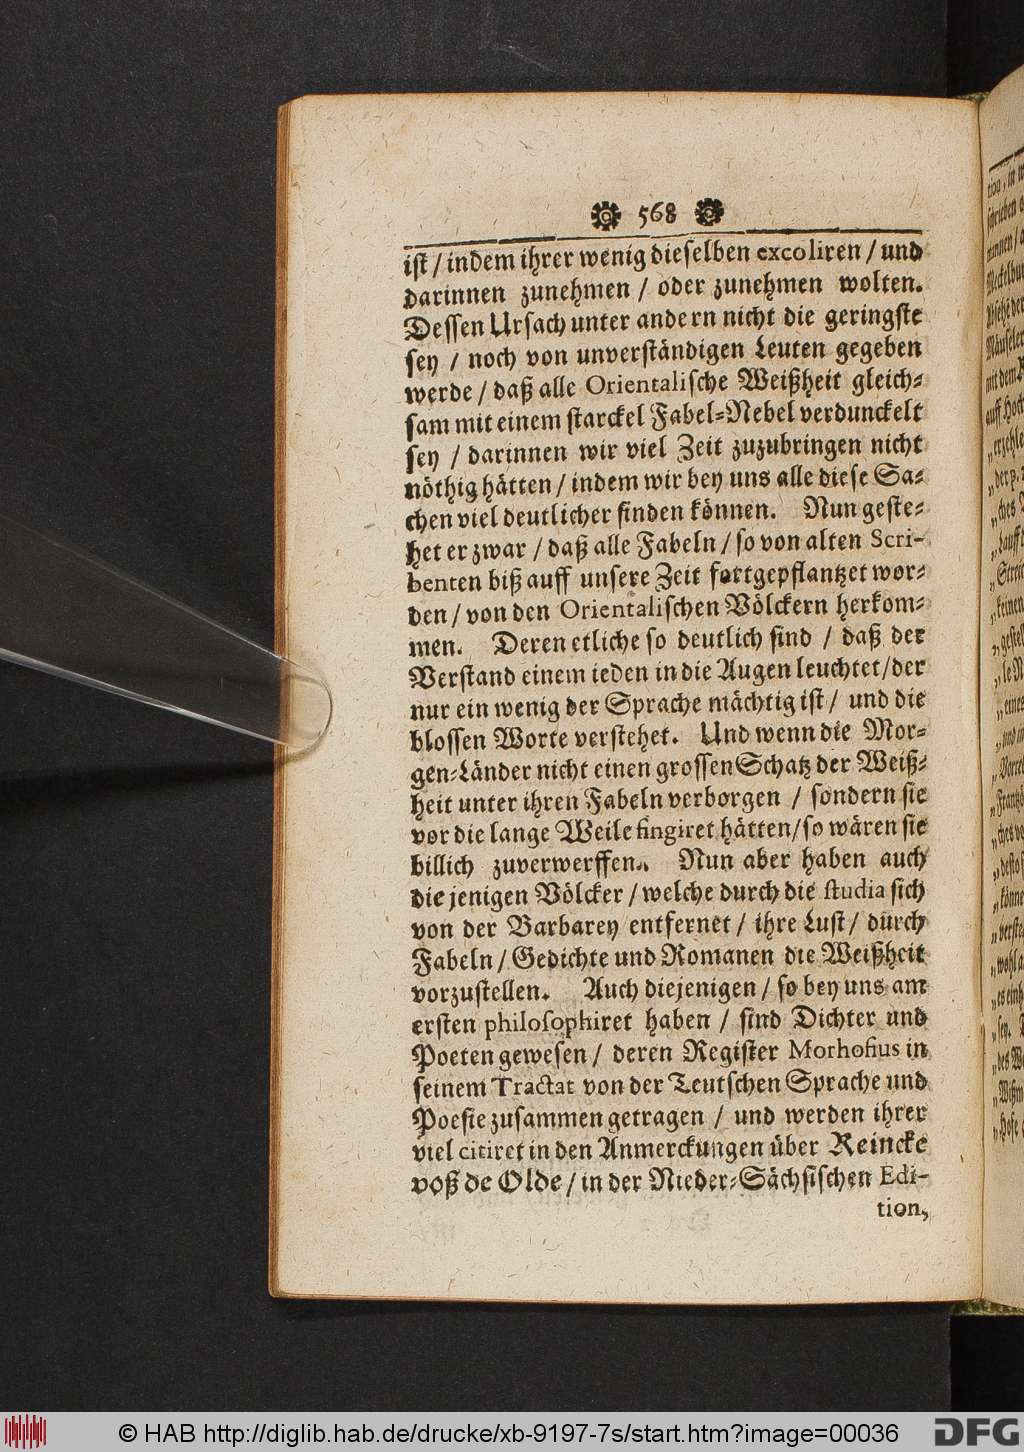 568
ist / indem ihrer wenig dieselben excoliren / und
darinnen zunehmen / oder zunehmen wolten.
Dessen Ursach unter andern nicht die geringste
sey / noch von unverständigen Leuten gegeben
werde / daß alle Orientalische Weißheit gleich-
sam mit einem starckel Fabel-Nebel verdunckelt
sey / darinnen wir viel Zeit zuzubringen nicht
nöthig hätten / indem wir bey uns alle diese Sa-
chen viel deutlicher finden können. Nun geste-
het er zwar / daß alle Fabeln / so von alten Scri-
benten biß auff unsere Zeit fortgepflantzet wor-
den / von den Orientalischen Völckern herkom-
men. Deren etliche so deutlich sind / daß der
Verstand einem ieden in die Augen leuchtet / der
nur ein wenig der Sprache mächtig ist / und die
blossen Worte verstehet. Und wenn die Mor-
gen-Länder nicht einen grossen Schatz der Weiß-
heit unter ihren Fabeln verborgen / sondern sie
vor die lange Weile fingiret hätten / so wären sie
billich zuverwerffen. Nun aber haben auch
die jenigen Völcker / welche durch die studia sich
von der Barbarey entfernet / ihre Lust / durch
Fabeln / Gedichte und Romanen die Weißheit
vorzustellen. Auch diejenigen / so bey uns am
ersten philosophiret haben / sind Dichter und
Poeten gewesen / deren Register Morhofius in
seinem Tractat von der Teutschen Sprache und
Poesie zusammen getragen / und werden ihrer
viel citiret in den Anmerckungen über Reincke
voß de Olde / in der Nieder-Sächsischen Edi-
tion,
© HAB http://diglib.hab.de/drucke/xb-9197-7s/start.htm?image=00036
DFG